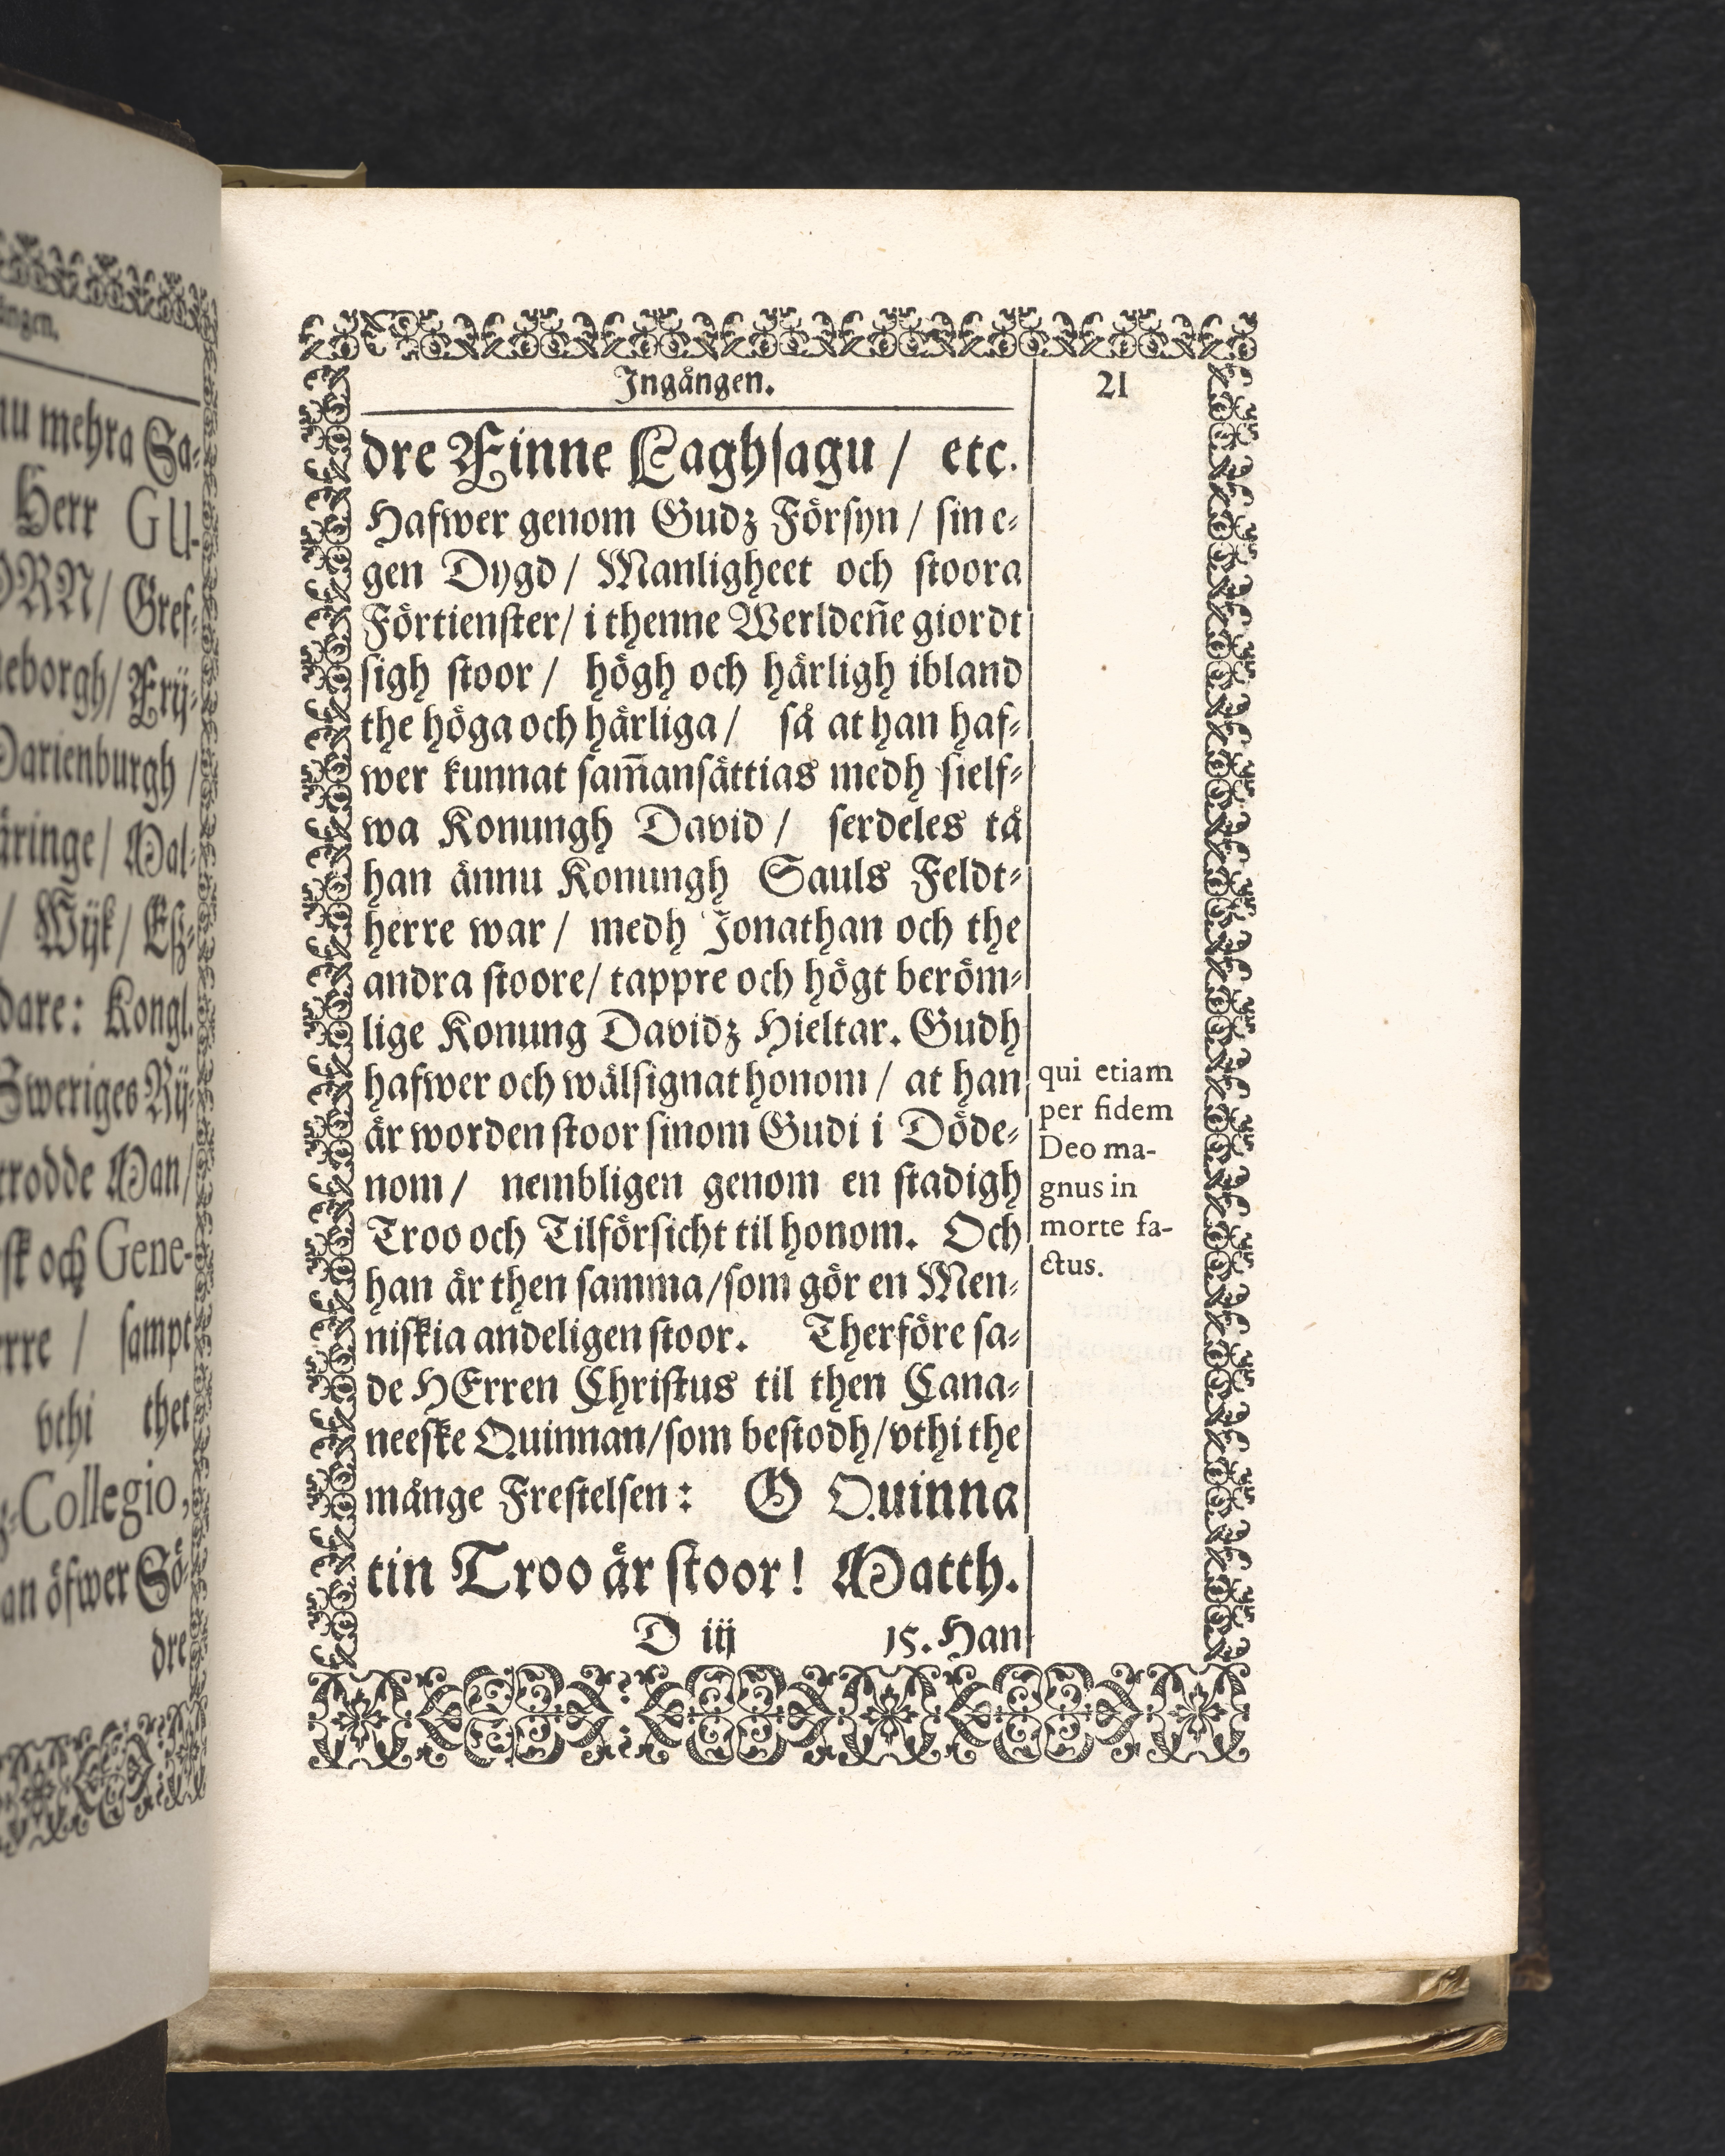 ängen.
nu mehra Sa-
Herr GU-
ORN/ Gref-
neborgh/ Frij-
Marienburgh/
äringe/ Mal-
/ Wijk/ Eß-
dare: Kongl.
Sweriges Rij-
trodde Man/
och Gene-
rre / sampt
vthi thet
-Collegio,
an öfwer Sö-
dre
Ingången.
21
dre Finne Laghsagu / etc.
Hafwer genom Gudz Försyn / sin e-
gen Dygd / Manligheet och stoora
Förtienster/ i thenne Werldeñe giordt
sigh stoor / högh och härligh ibland
the höga och härliga / så at han haf-
wer kunnat sam̃ansättias medh sielf-
wa Konungh David / serdeles tå
han ännu Konungh Sauls Feldt-
herre war / medh Jonathan och the
andra stoore/ tappre och högt beröm-
lige Konung Davidz Hieltar. Gudh
hafwer och wälsignat honom / at han
är worden stoor sinom Gudi i Döde-
nom / nembligen genom en stadigh
Troo och Tilförsicht til honom. Och
han är then samma/som gör en Men-
niskia andeligen stoor. Therföre sa-
de HErren Christus til then Cana-
neeske Quinnan/som bestodh/vthi the
månge Frestelsen: O Quinna
tin Troo är stoor! Matth.
D iij 15. Han
qui etiam
per fidem
Deo ma-
gnus in
morte fa-
ctus.